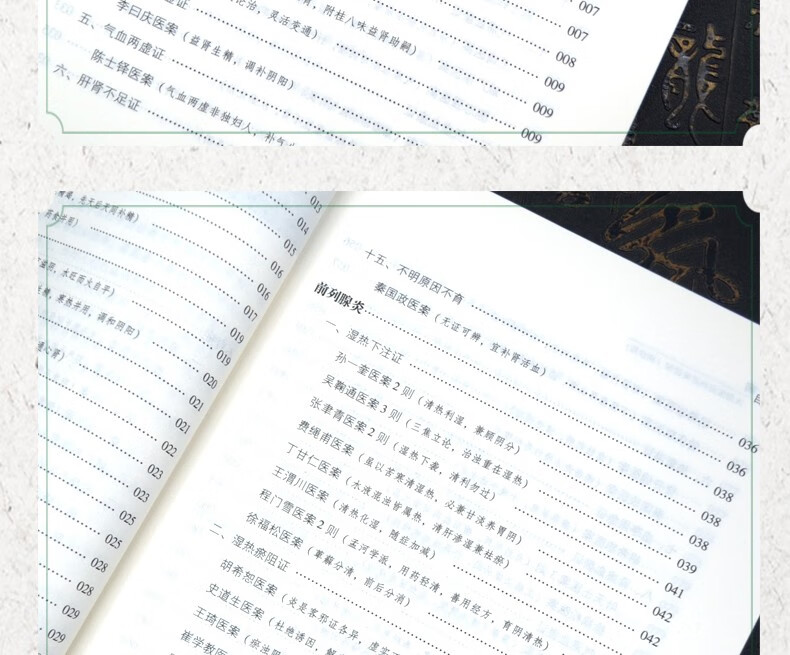 007
李曰庆医案（益肾生精，调补阴阳） 007
五、气血两虚证 008
陈士铎医案（气血两虚非独妇人，补气 009
六、肝肾不足证 009
013
014
015
016
016
017
019
019
020
021
021
022
023
023
025
025
028
028
029
029
十五、不明原因不育 036
秦国政医案（无证可辨，宜补肾活血） 036
前列腺炎 038
一、湿热下注证 038
孙一奎医案2则（清热利湿，兼顾阴分） 038
吴鞠通医案3则（三焦立论，治浊重在湿热） 039
张聿青医案2则（湿热下袭，清利勿过） 041
费绳甫医案（虽以苦寒清湿热，必兼甘淡养胃阴） 042
丁甘仁医案（水液混浊皆属热，清肝渗湿兼祛瘀） 042
王渭川医案（清热化湿，随症加减）
程门雪医案2则（孟河学派，用药轻清，善用经方，育阴清热）
徐福松医案（萆薢分清，前后分消）
二、湿热瘀阻证
胡希恕医案（炎是客邪证各异，虚实
史道生医案（杜绝诱因，解
王琦医案（瘀浊阻
崔学教医